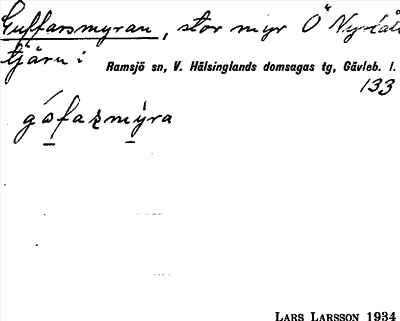 Guffarsmyran, stor myr Ö Nyvall
tjärn:
Ramsjö sn, V. Hälsinglands domsagas tg, Gävleb. l.
133
gófazmýra
LARS LARSSON 1934